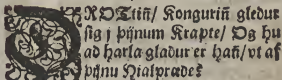 DROTtiñ/ Konguriñ gledur
sig j þijnum Krapte/ Og hu
ad harla gladur er hañ/ vt af
þijnu Hialpræde?